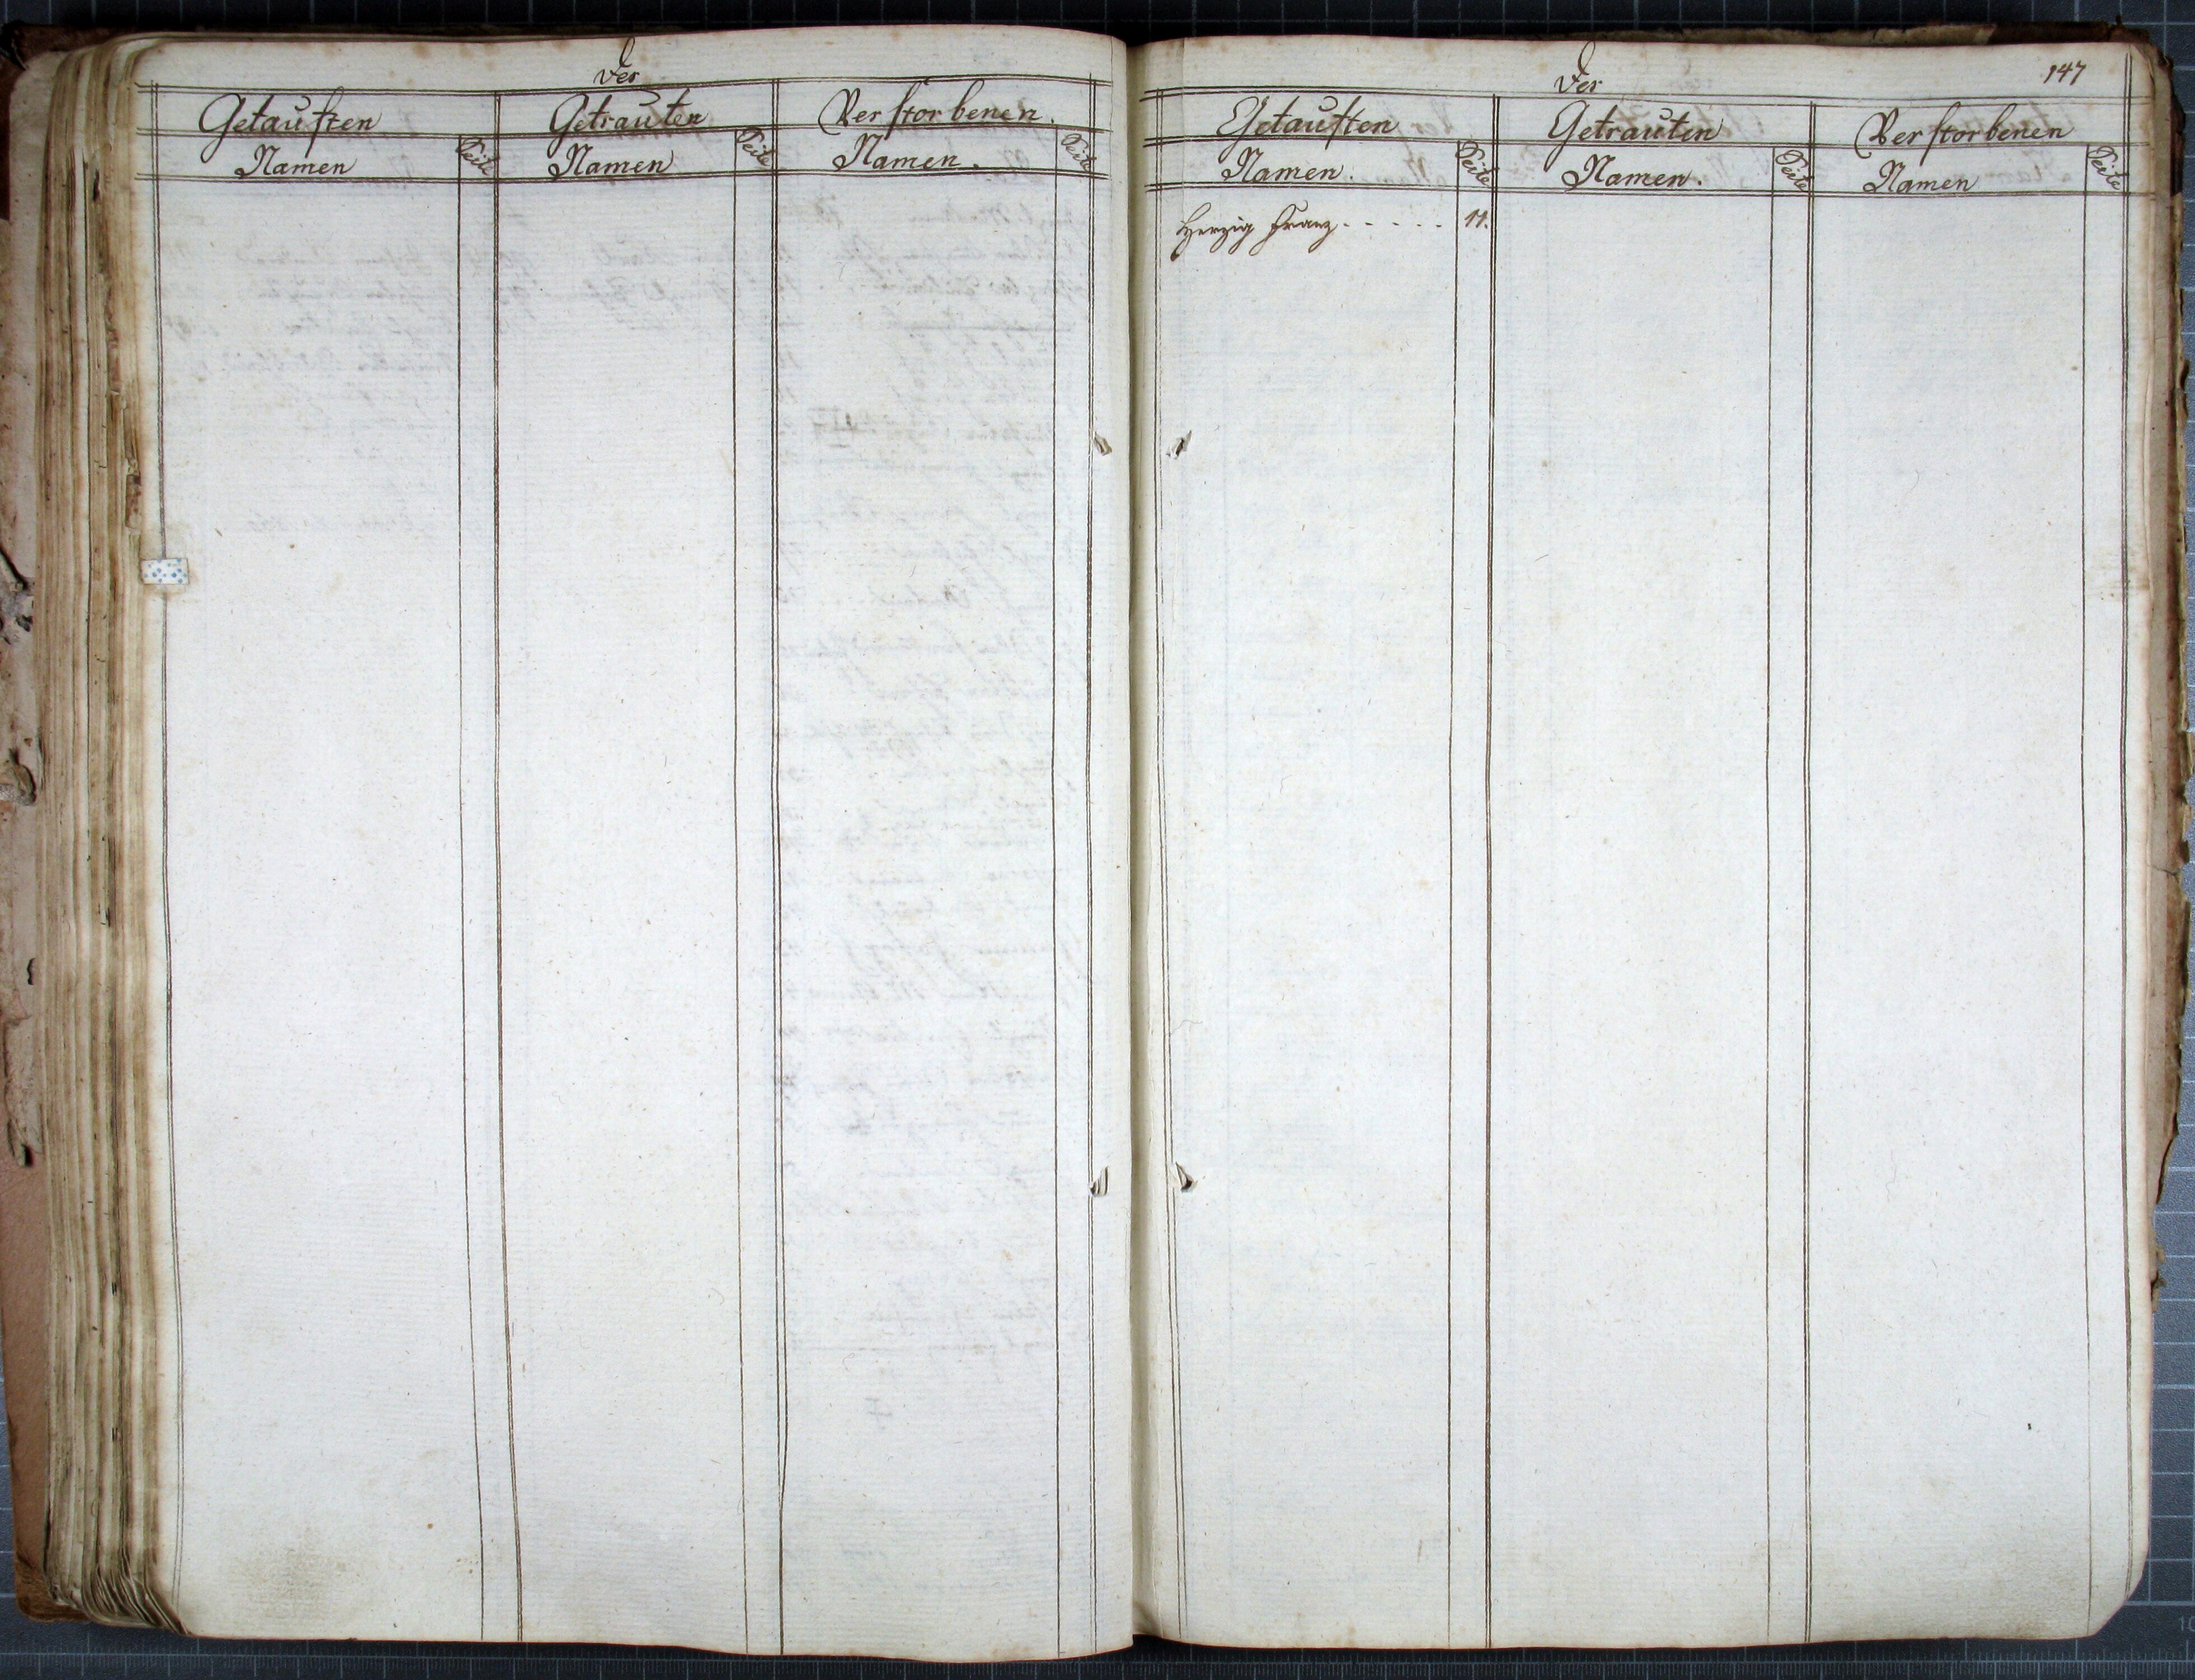 Der
Getauften Getrauten Verstorbenen.
Namen Seite Namen Seite Namen. Seite
Der 147
Getauften Getrauten Verstorbenen
Namen. Seite Namen. Seite Namen Seite
Herzig Franz . . . . . 11.